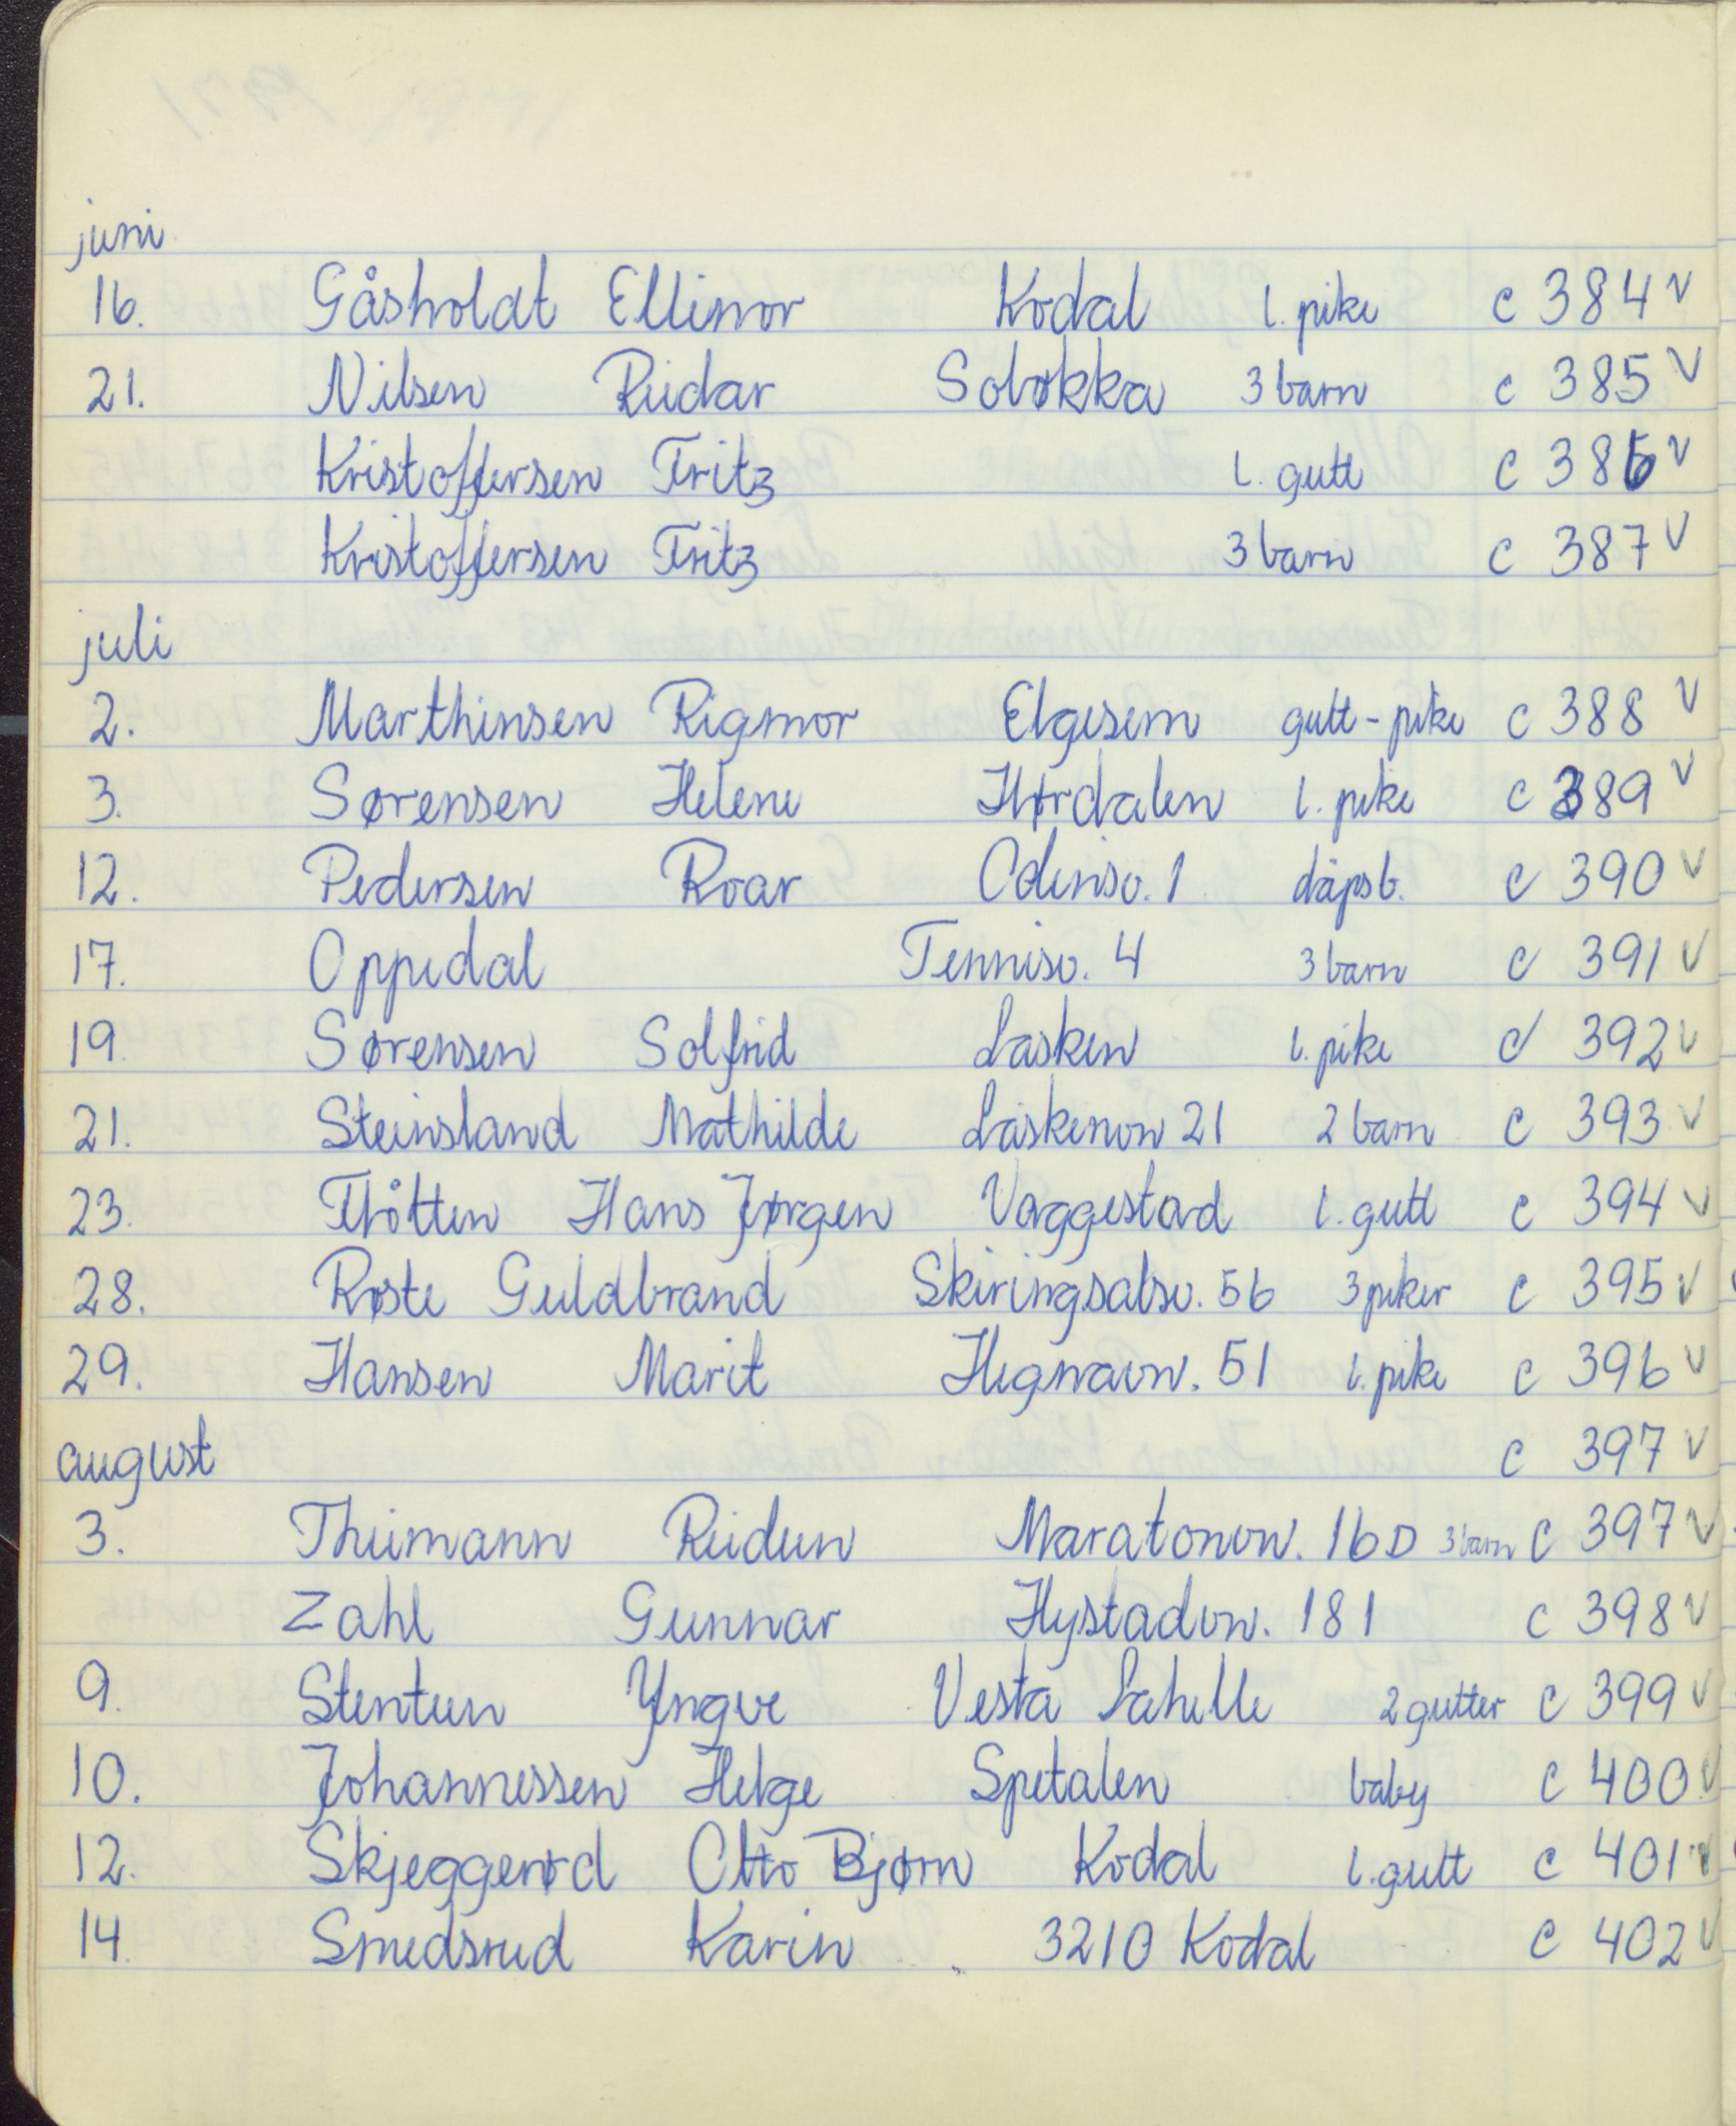 juni
16. Gåsholdt Ellinor Kodal 1. pike c 384 v
21. Nilsen Reidar Soløkka 3 barn c 385 v
Kristoffersen Fritz 1. gutt c 386 v
Kristoffersen Fritz 3 barn c 387 v
juli
2. Marthinsen Rigmor Elgesem gutt - pike c 388 v
3. Sørensen Helene Hørdalen 1. pike c 389 v
12. Pedersen Roar Odinsv. 1 dåpsb. c 390 v
17. Oppedal Tennisv. 4 3 barn c 391 v
19. Sørensen Solfrid Lasken 1. pike c 392 v
21. Steinsland Mathilde Laskenvn 21 2 barn c 393 v
23. Thåtten Hans Jørgen Vaggestad 1. gutt c 394 v
28. Røste Guldbrand Skiringsalsv. 56 3 piker c 395 v
29. Hansen Marit Hegnavn. 51 1. pike c 396 v
august c 397 v
3. Thiimann Reidun Maratonvn. 16 D 3 barn c 397 v
Zahl Gunnar Hystadvn. 181 c 398 v
9. Stentun Yngve Vesta Lahelle 2 gutter c 399 v
10. Johannessen Helge Spetalen baby c 400 v
12. Skjeggerød Otto Bjørn Kodal 1. gutt c 401 v
14. Smedsrud Karin 3210 Kodal c 402 v